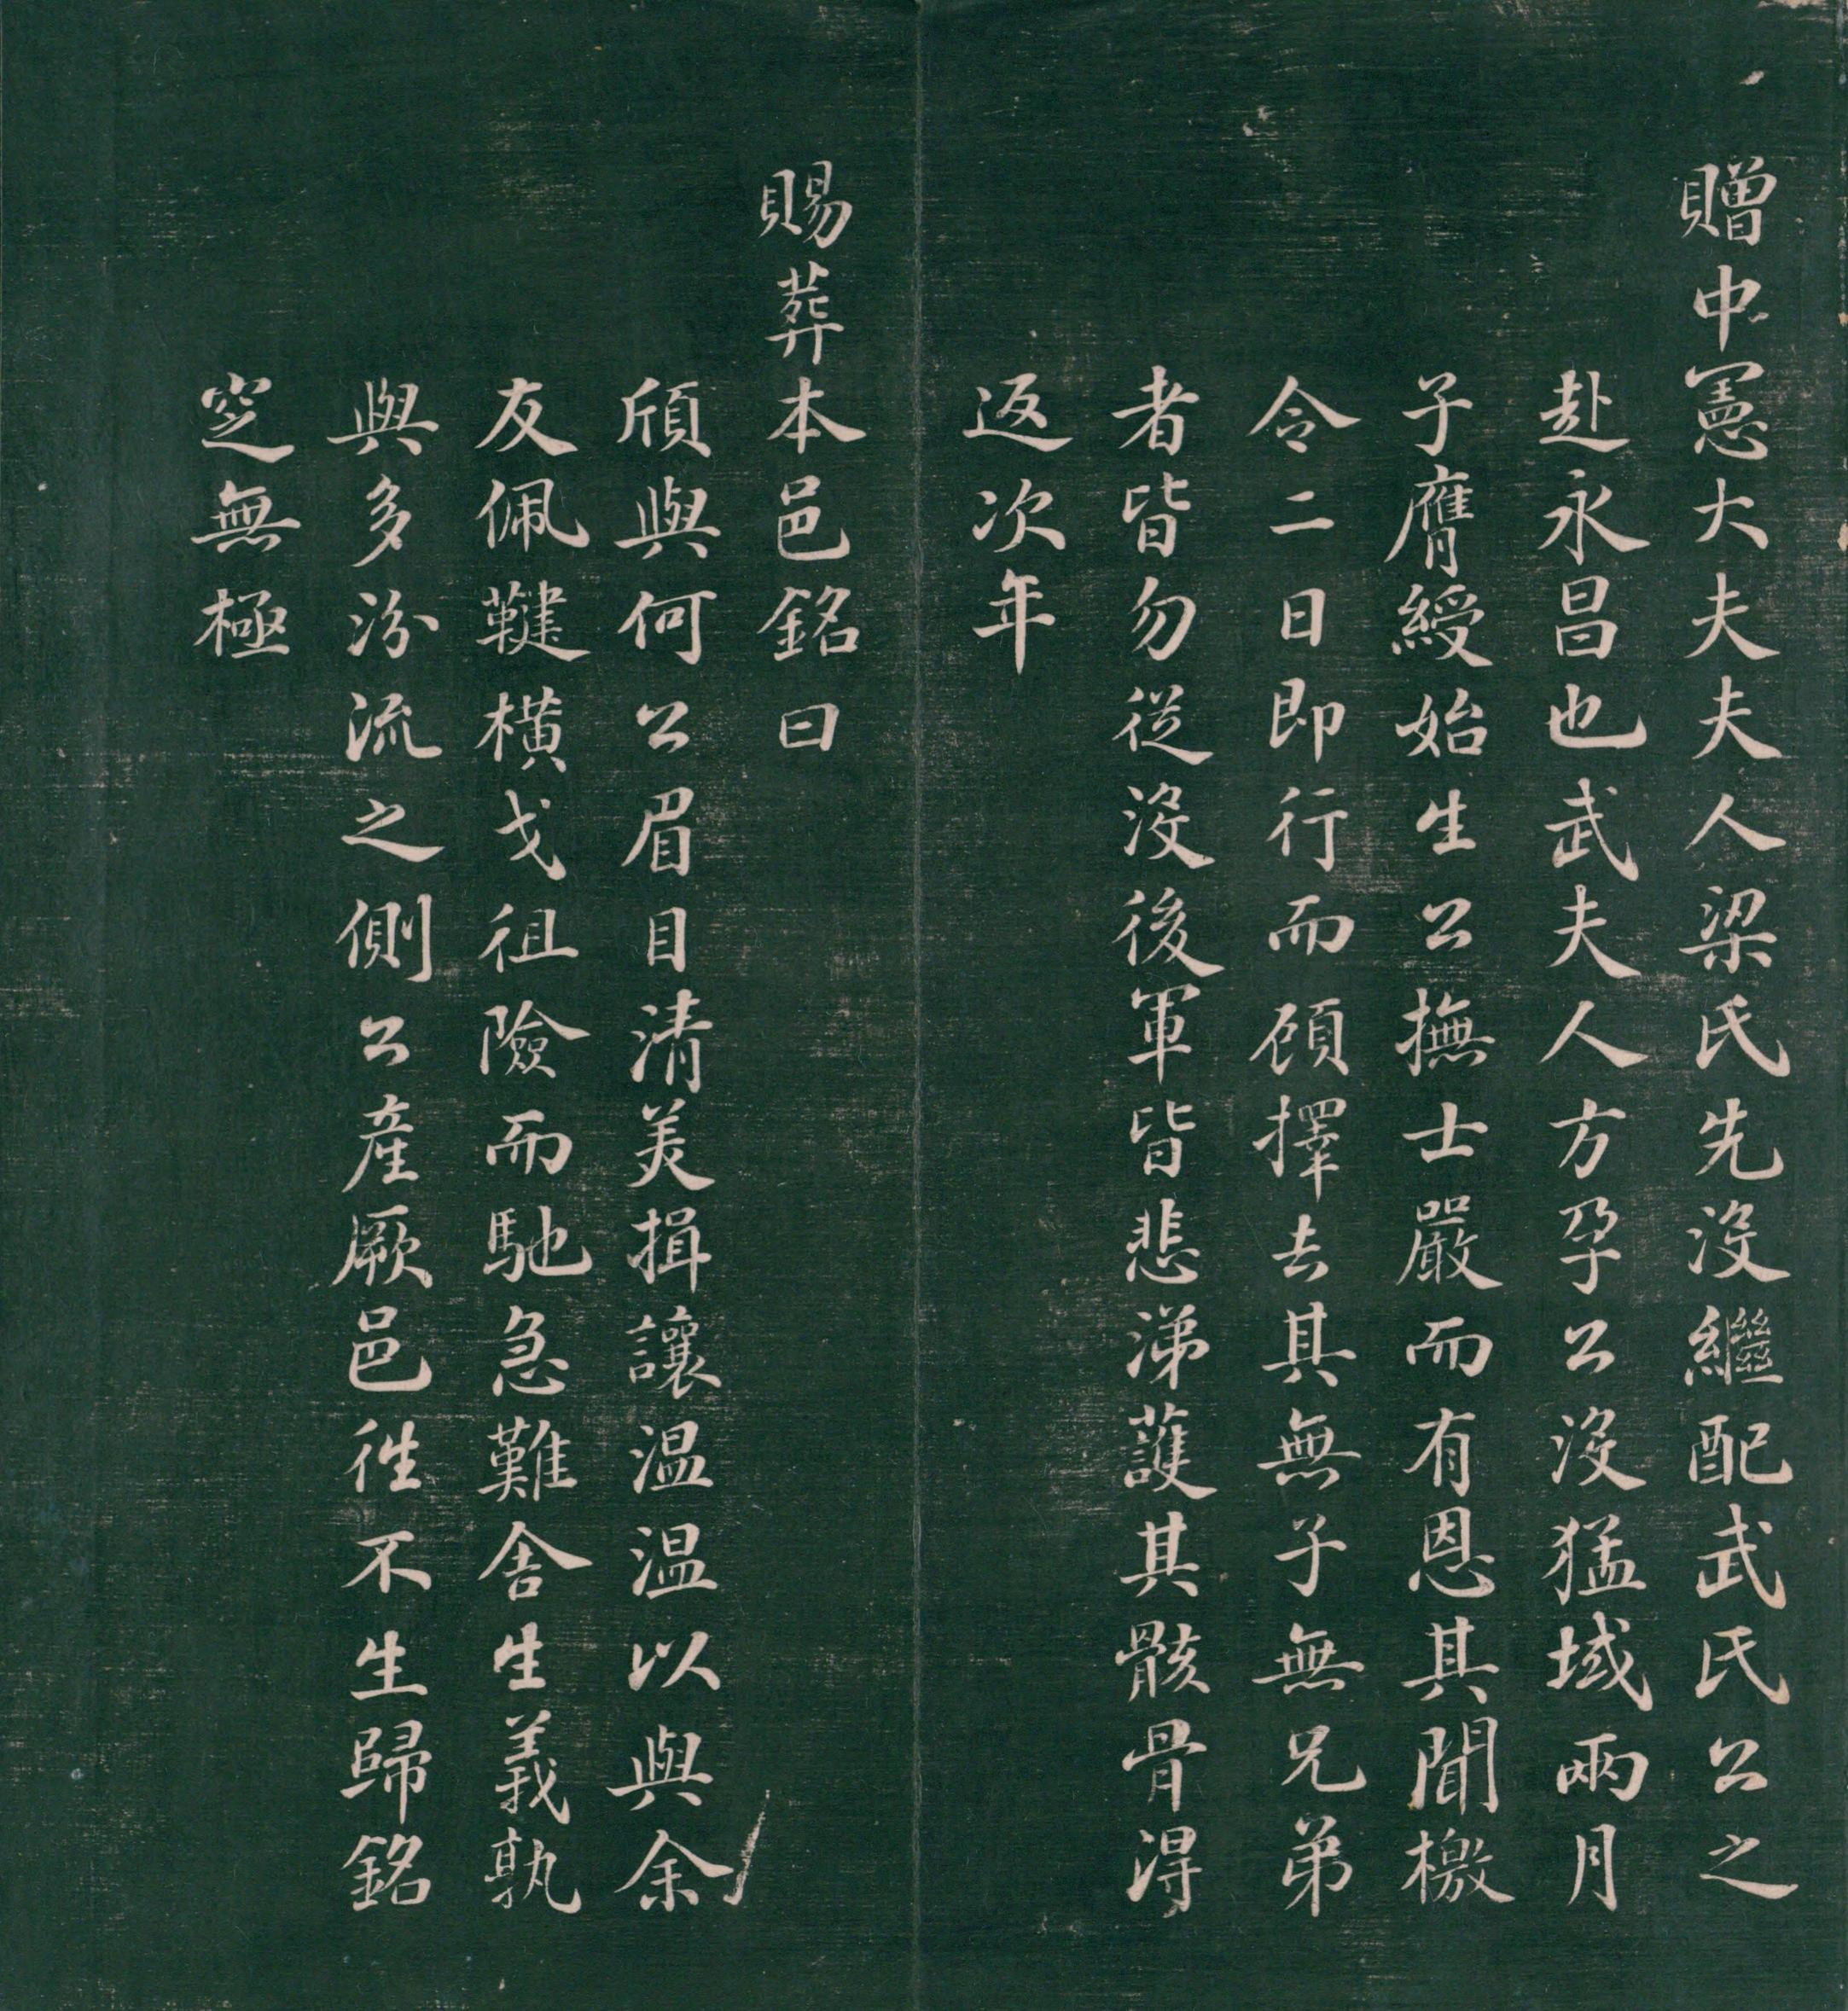 贈中憲大夫夫人梁氏先沒繼配武氏公之
赴永昌也武夫人方孕公沒猛域兩月
子膺綬始生公撫士嚴而有恩其聞檄
令二日即行而顧擇去其無子無兄弟
者皆勿從沒後軍皆悲涕護其骸骨得
返次年
賜葬本邑銘曰
頎與何公眉目清美揖讓溫溫以與余
友佩鞬橫戈徂險而馳急難舍生義孰
與多汾流之側公產厥邑徃不生歸銘
窆無極